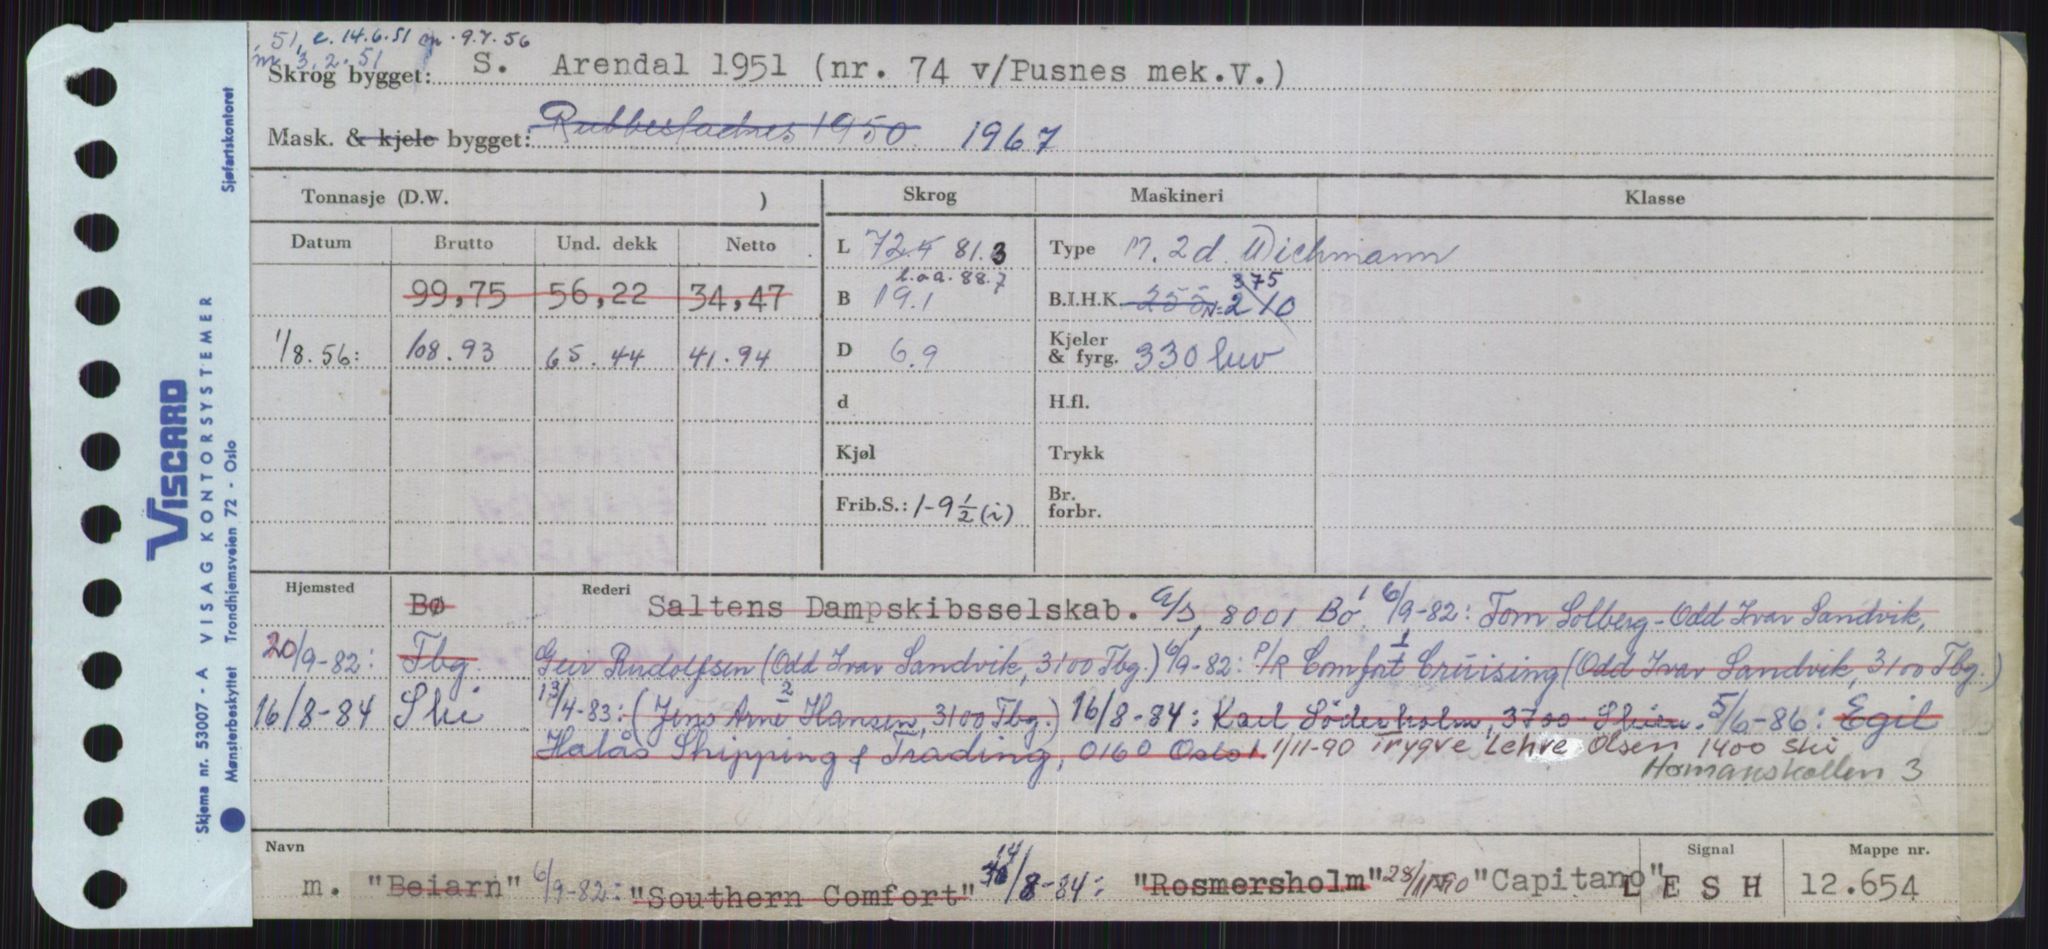 51, e. 14.6.51 m. 9.7.56
m. 3.2.51
Skrog bygget: S. Arendal 1951 (nr. 74 v/Pusnes mek.V.)
Mask. & kjele bygget: Rubbestadnes 1950 1967
Tonnasje (D.W. ) Skrog Maskineri Klasse
Datum Brutto Und. dekk Netto
L 72.4 81.3 Type M. 2 d. Wichmann
l.o.a. 88.7 375
99,75 56,22 34,47 B 19.1 B.I.H.K. 255 N= 210
1/8.56: 108.93 65.44 41.94 D 6.9 Kjeler & fyrg. 330 luv
d H.fl.
Kjøl Trykk
Frib.S.: 1-9½ (i) Br. forbr.
Hjemsted Bø Rederi Saltens Dampskibsselskab. A/S, 8001 Bo. 6/9-82: Tom Solberg - Odd Ivar Sandvik,
20/9-82: Tbg. Geir Rudolfsen (Odd Ivar Sandvik, 3100 Tbg.) 6/9-82: P/R Comfort Cruising (Odd Ivar Sandvik, 3100 Tbg.)
16/8-84 Ski 13/4-83: (Jens Arne Hansen, 3100 Tbg.) 16/8-84: Karl Söderholm, 3700 Skien. 5/6-86: Egil
Halås Shipping & Trading, 0160 Oslo 1 1/11-90 Trygve Lehre Olsen 1400 Ski
Homanskollen 3
Navn Signal Mappe nr.
m. "Beiarn" 6/9-82: "Southern Comfort" 14/8-84: "Rosmersholm" 28/11-90 "Capitano" L E S H 12.654
VISCARD
Skjema nr. 53007 - A VISAG KONTORSYSTEMER
Mønsterbeskyttet Trondhjemsveien 72 - Oslo Sjøfartskontoret